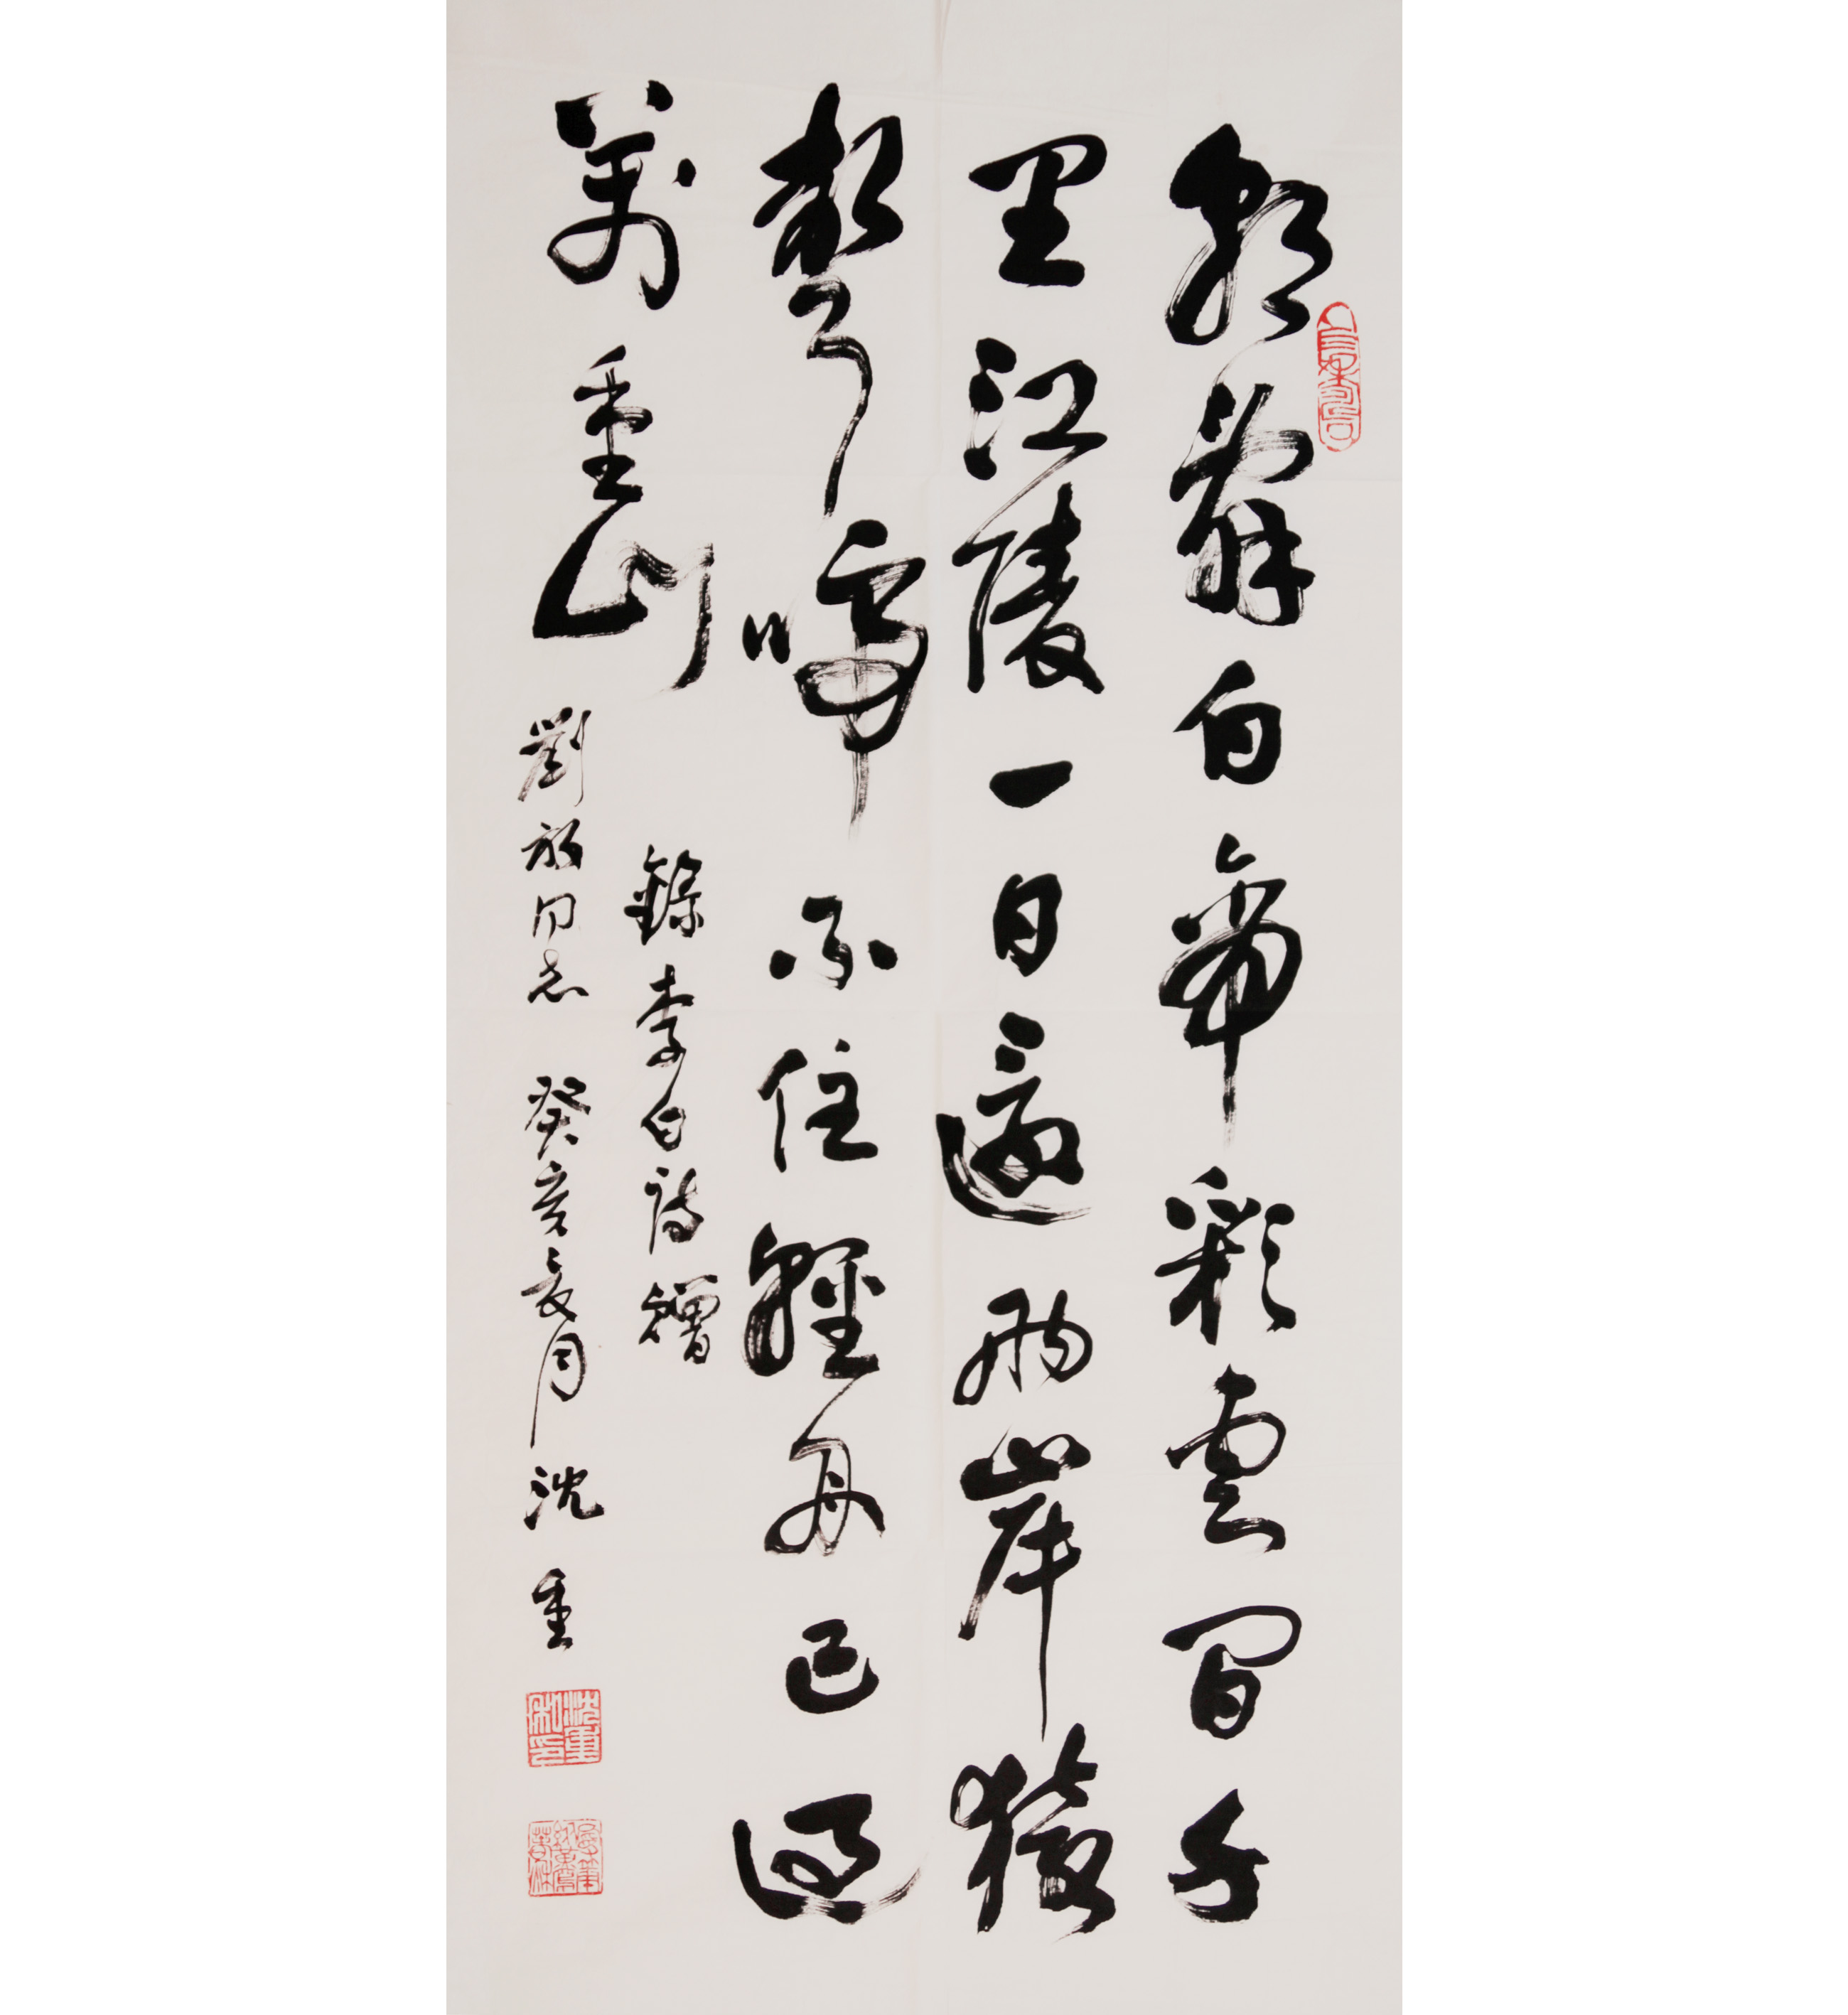 朝辭白帝彩雲間千
里江陵一日還兩岸猿
聲啼不住輕舟已過
萬重山
錄李白詩贈
劉放同志 癸亥夏月 沈重
沈重私印